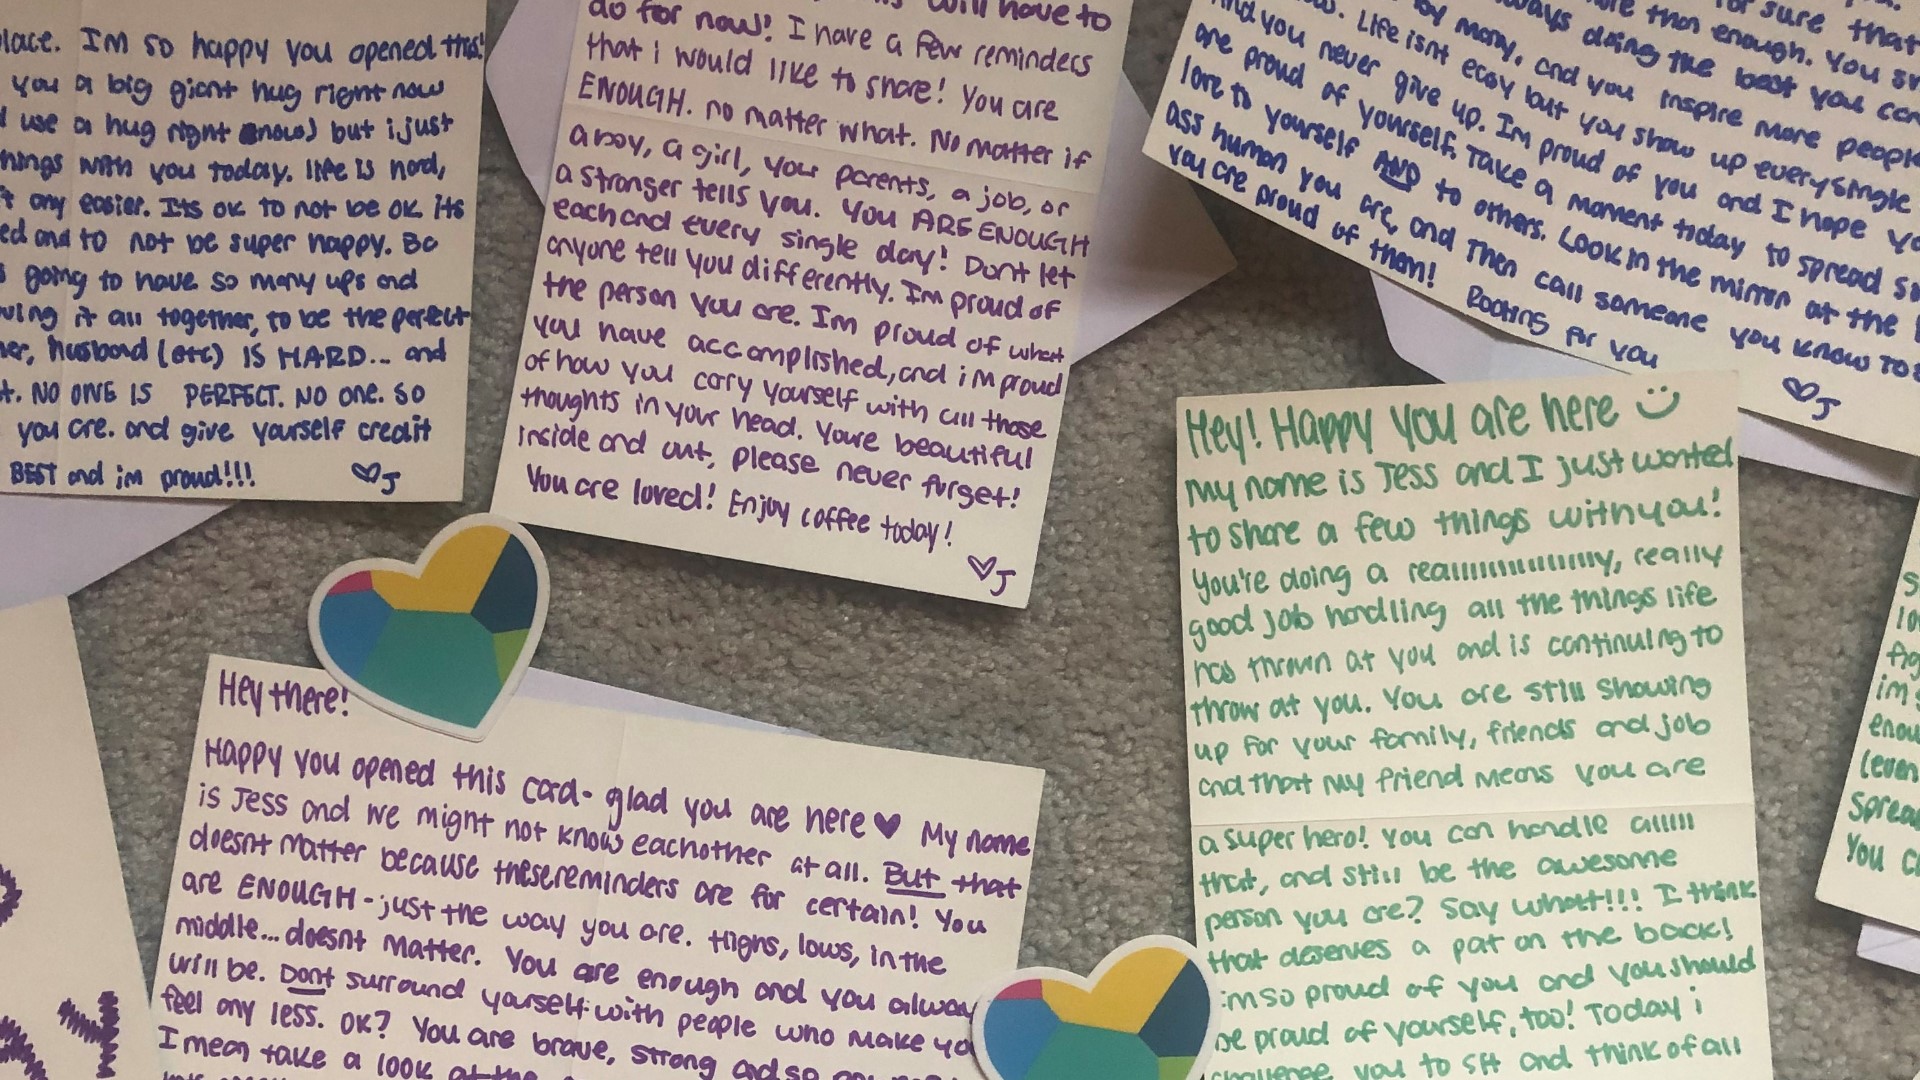 lace. IM so happy you opened this!
you a big giant hug right now
use a hug right now) but i just
things with you today. life is hard,
any easier. Its ok to not be ok its
ed and to not be super happy. Bc
going to have so many ups and
ving it all together, to be the perfect
her, husband (etc) IS HARD... and
t. NO ONE IS PERFECT. NO one. SO
you are. and give yourself credit
BEST and im proud!!!
♡J
will have to
do for now! I have a few reminders
that i would like to share! You are
ENOUGH. no matter what. No matter if
a boy, a girl, your parents, a job, or
a stranger tells you. You ARE ENOUGH
each and every single day! Dont let
anyone tell you differently. Im proud of
the person you are. Im proud of what
you have accomplished, and im proud
of how you cary yourself with all those
thoughts in your head. Youre beautiful
inside and out, please never forget!
You are loved! Enjoy coffee today!
♡J
for sure that
more than enough. You
always doing the best you can
by many, and you inspire more people
Life isnt easy but you show up everysingle
And you never give up. Im proud of you and I hope
are proud of yourself. Take a moment today to spread
love to yourself AND to others. Look in the mirror at the
ass human you are, and then call someone you know to
you are proud of them! Rooting for you
♡J
Hey! Happy you are here
My name is Jess and I just wanted
to share a few things with you!
You're doing a realllllllllllllly, really
good job handling all the things life
has thrown at you and is continuing to
throw at you. You are still showing
up for your family, friends and job
and that my friend means you are
a super hero! You can handle alllll
that, and still be the awesome
person you are? Say whatt!!! I think
that deserves a pat on the back!
im so proud of you and you should
be proud of yourself, too! Today i
challenge you to sit and think of all
Hey there!
Happy you opened this card- glad you are here ♥ My name
is Jess and we might not know eachother at all. But that
doesnt matter because these reminders are for certain! You
are ENOUGH - just the way you are. Highs, lows, in the
middle... doesnt matter. You are enough and you alway
will be. Dont surround yourself with people who make yo
feel any less. OK? You are brave, strong and so
I mean take a look at the
im
enou
(even
sprea
You c